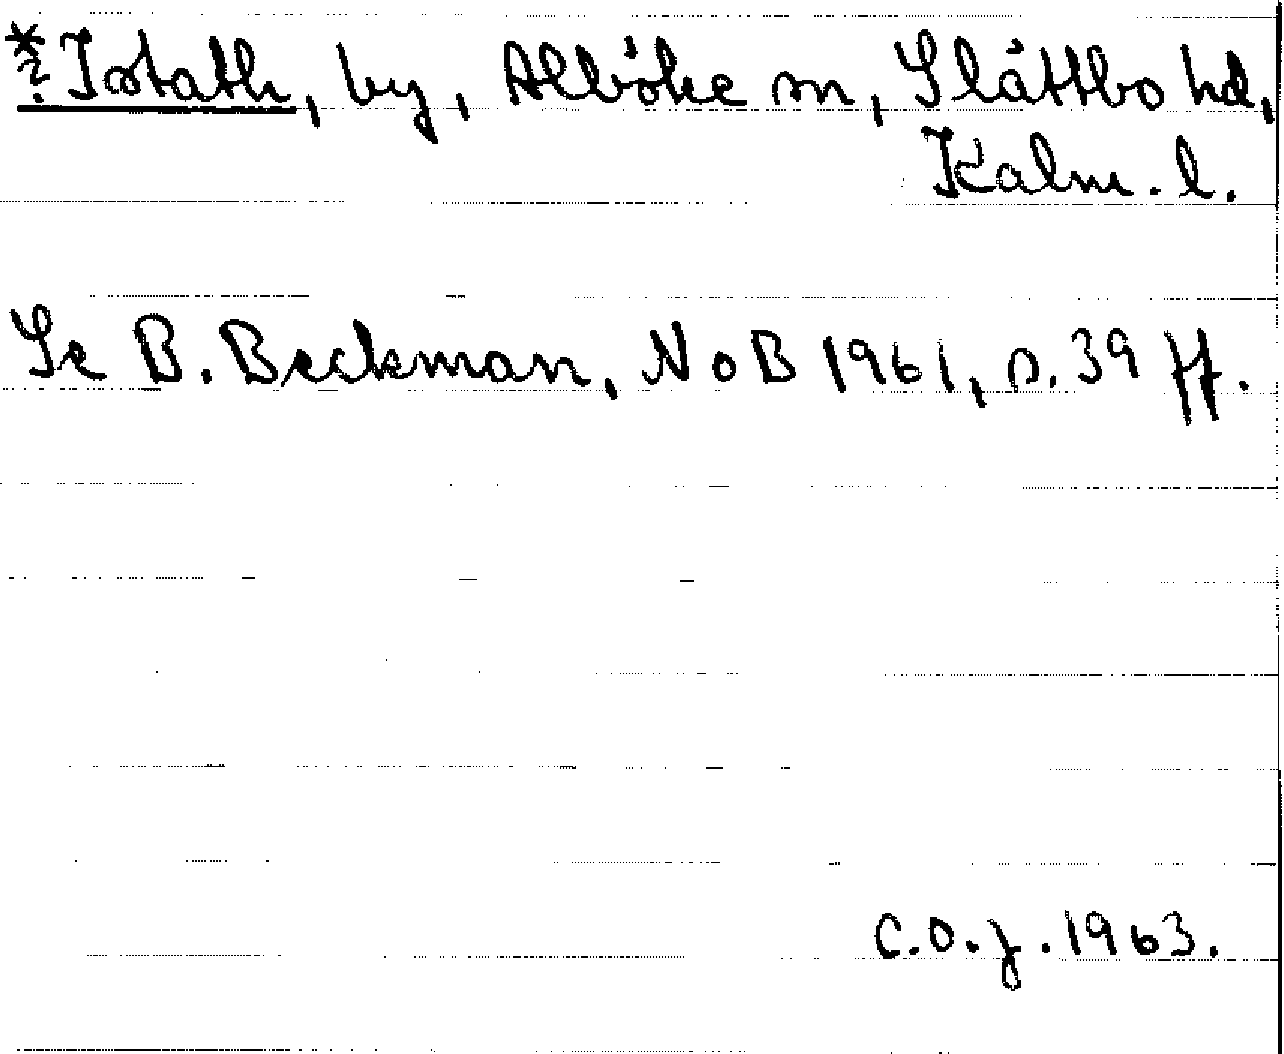 *? Istath, by, Alböke sn, Slättbo hd,
Kalm. l.
Se B. Beckman, NoB 1961, s. 39 ff.
C.O.J. 1963.